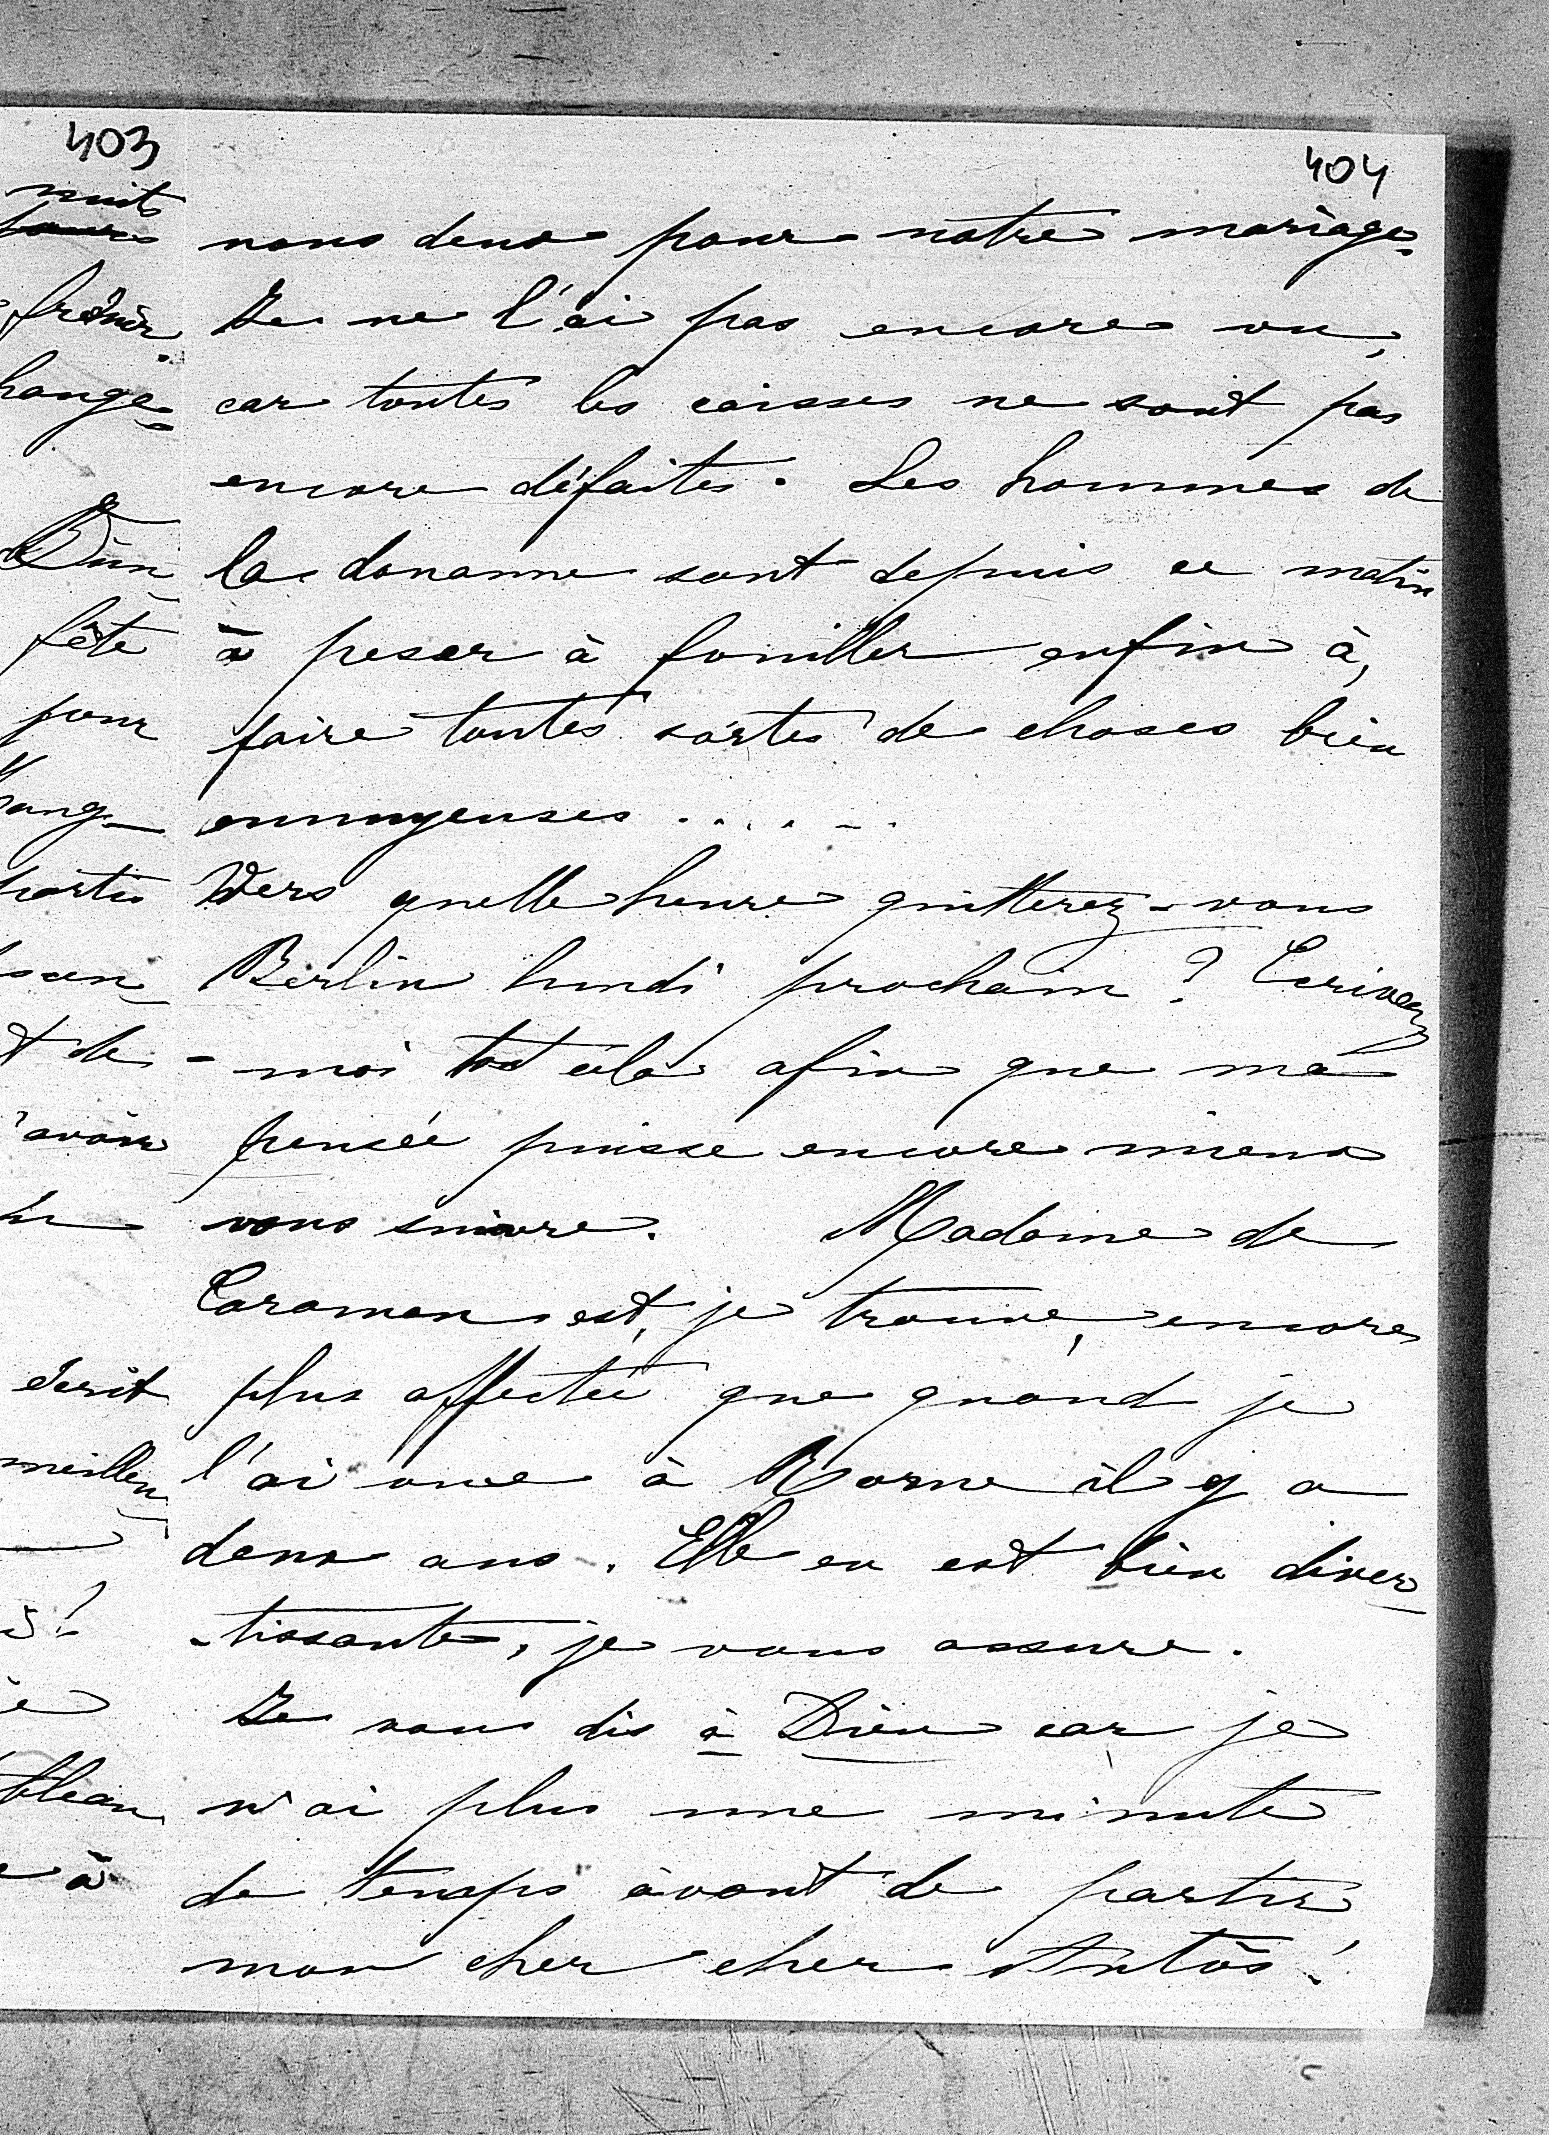 403
nuits
frémir.
hange=
Dun
fête
pour
sang-
partie
t de
avoir
écrit
meilleu
bleau
à
404
nous deux pour notre mariage.
Je ne l'ai pas encore vu,
car toutes les caisses ne sont pas
encore défaites. Les hommes de
la douanne sont depuis ce matin
à peser à fouiller enfin à,
faire toutes sortes de choses bien
ennuyeuses . . . . . .
Vers quelle heure quitterez-vous
Berlin lundi prochain ? Ecrivez
- moi tot cela afin que ma
pensée puisse encore mieux
vous suivre. Madame de
Caraman est, je trouve, encore
plus affectée que quand je
l'ai vue à Rome il y a
deux ans. Elle en est bien diver-
-tissante, je vous assure.
Je vous dis à Dieu car je
n'ai plus une minute
de temps avant de partir
mon cher cher Antos!